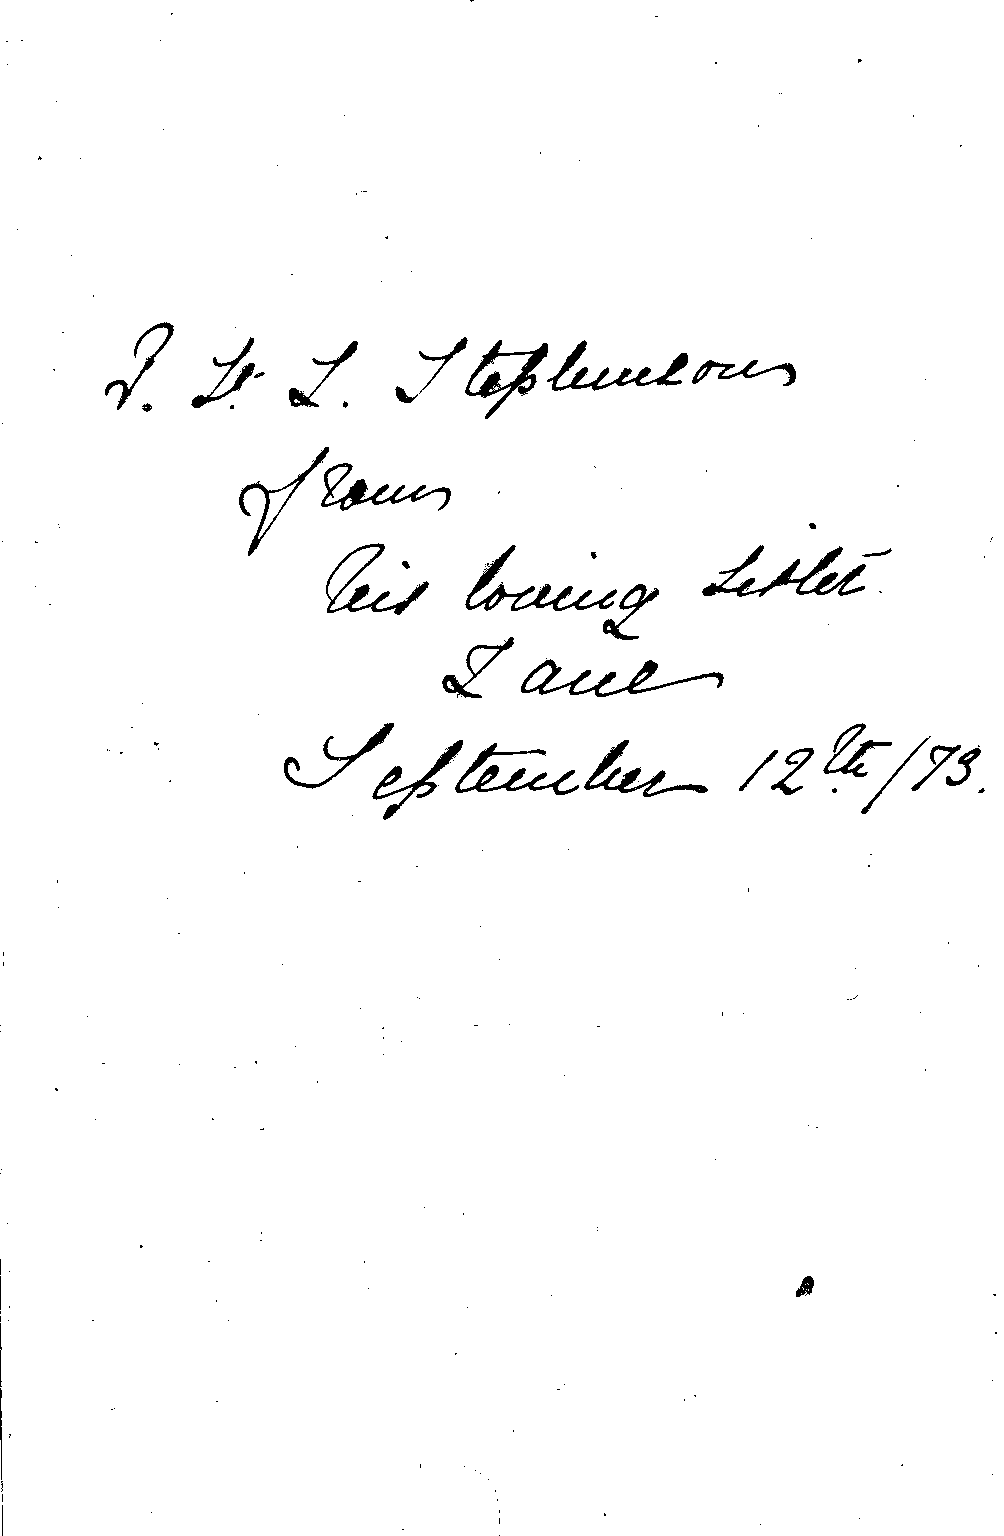 J. St. L. Stephenson
from
his loving sister
Jane
September 12th/73.